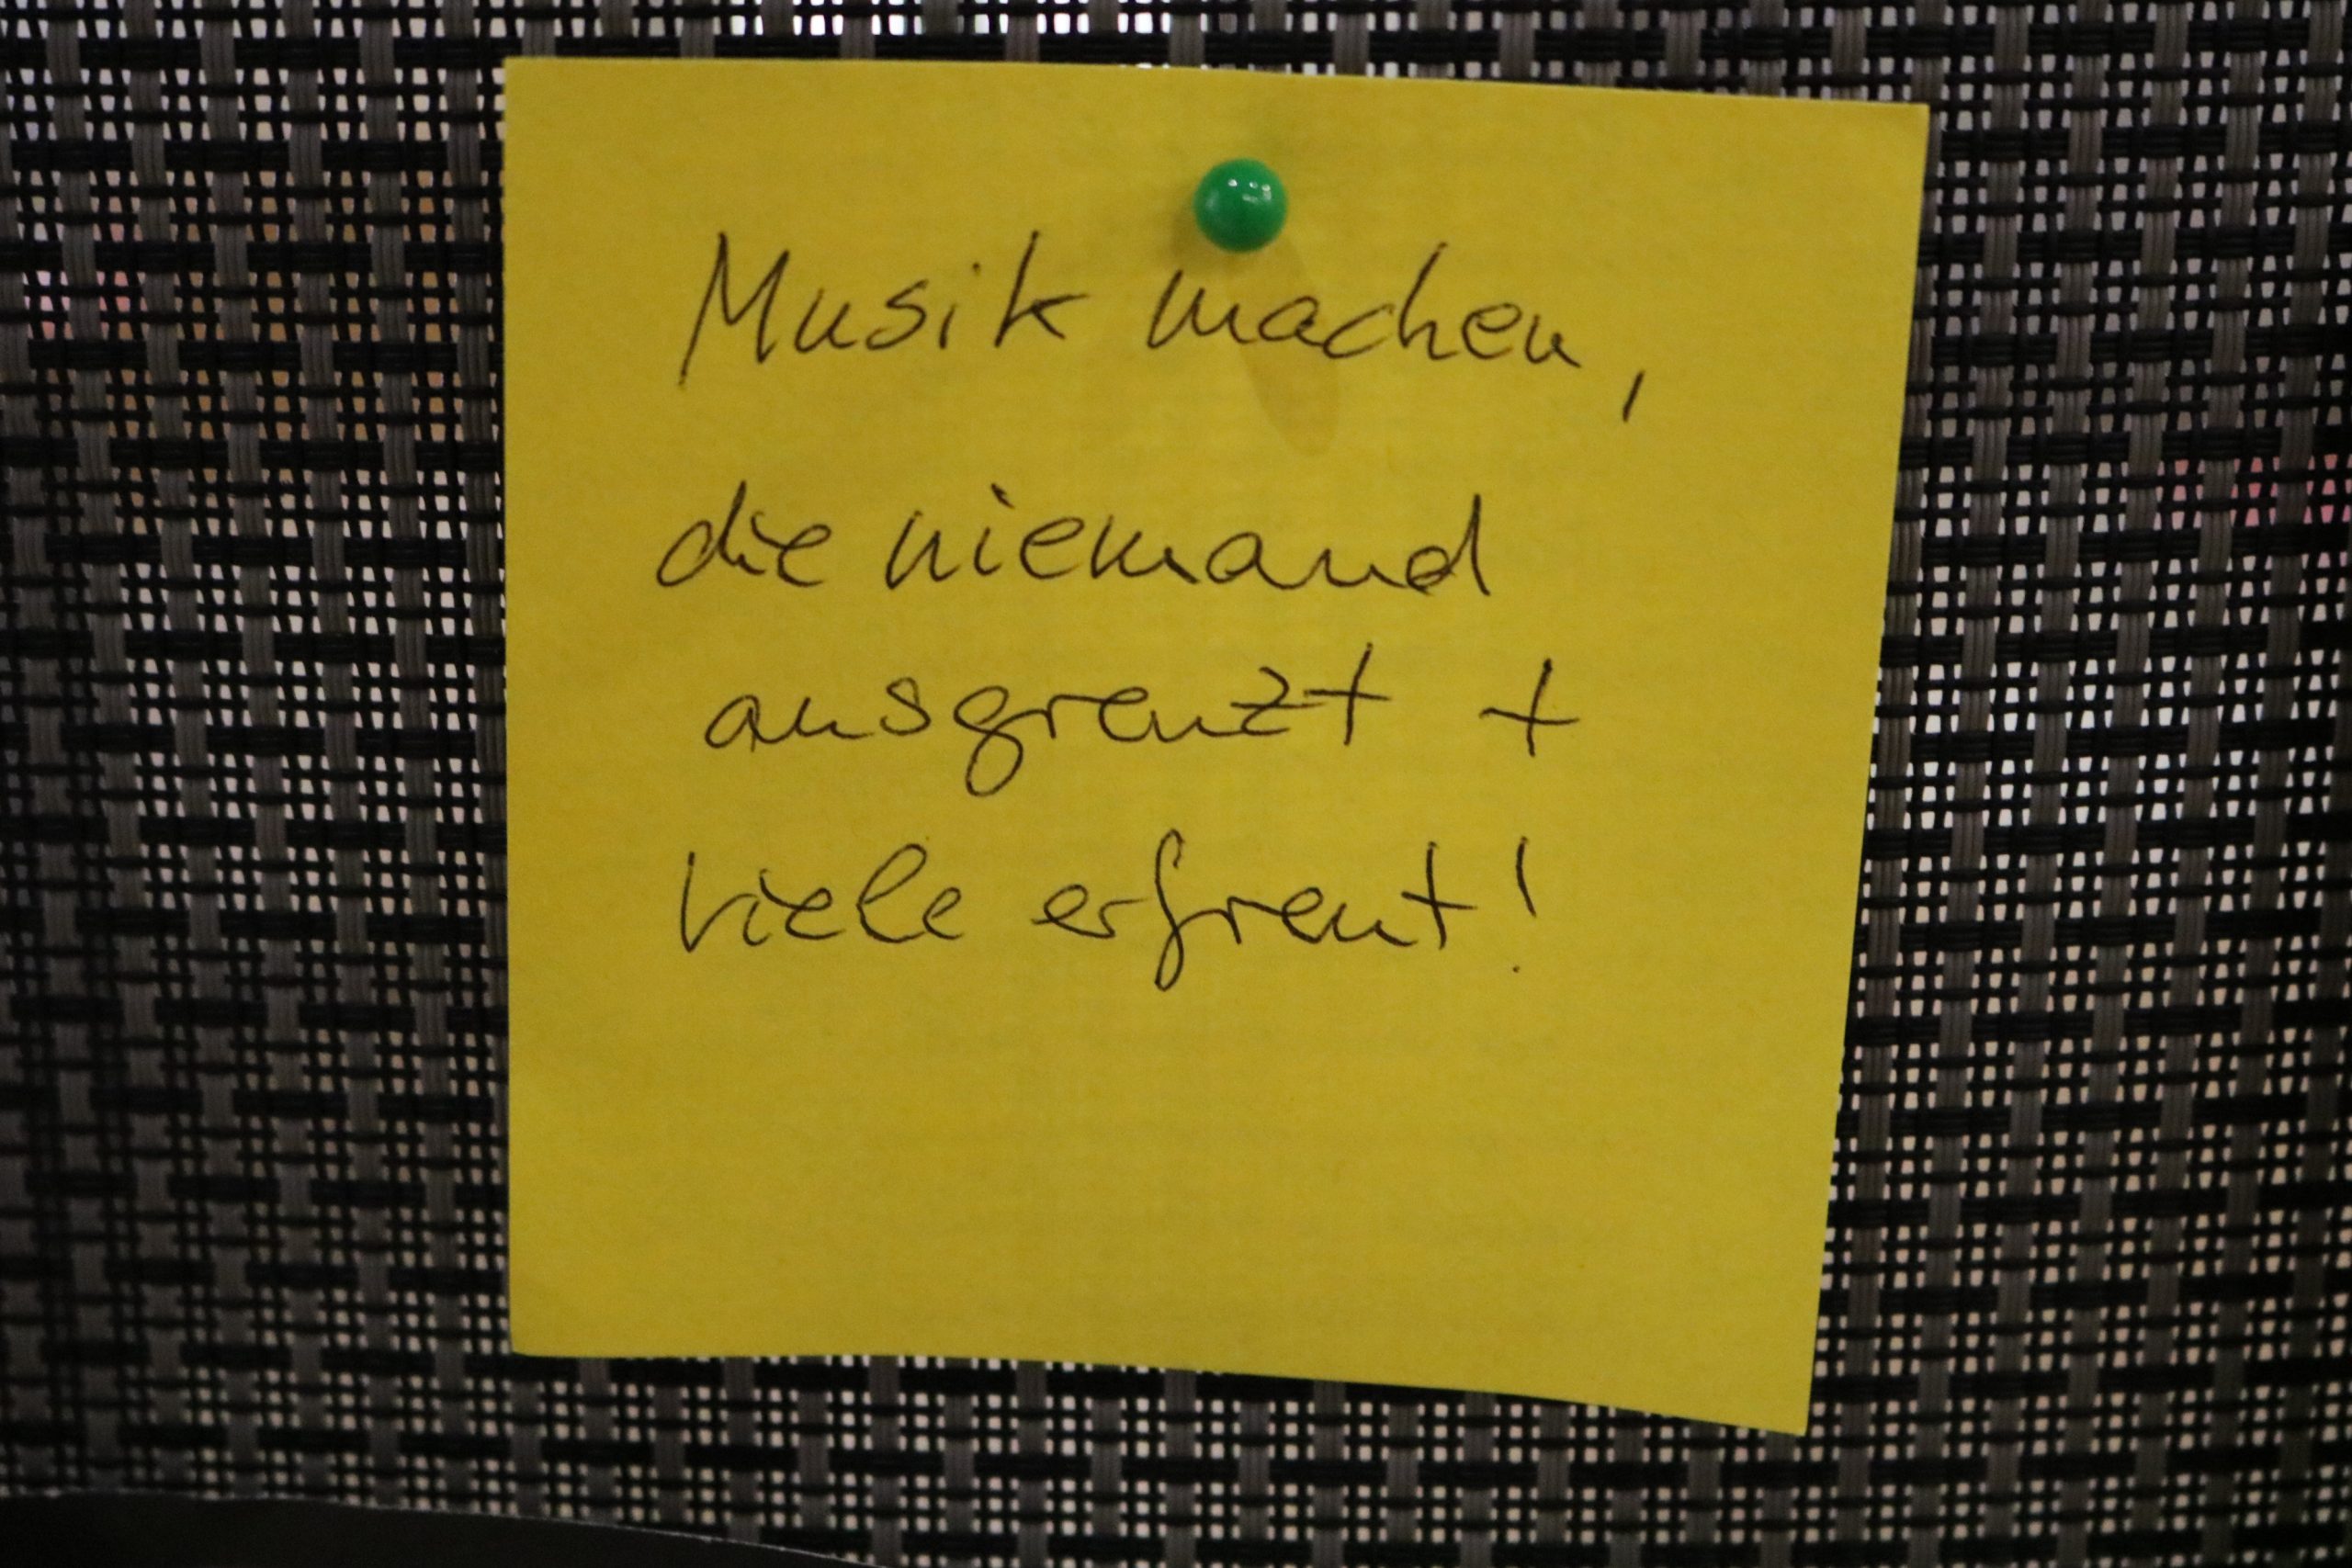 Musik machen,
die niemand
ausgrenzt +
viele erfreut!